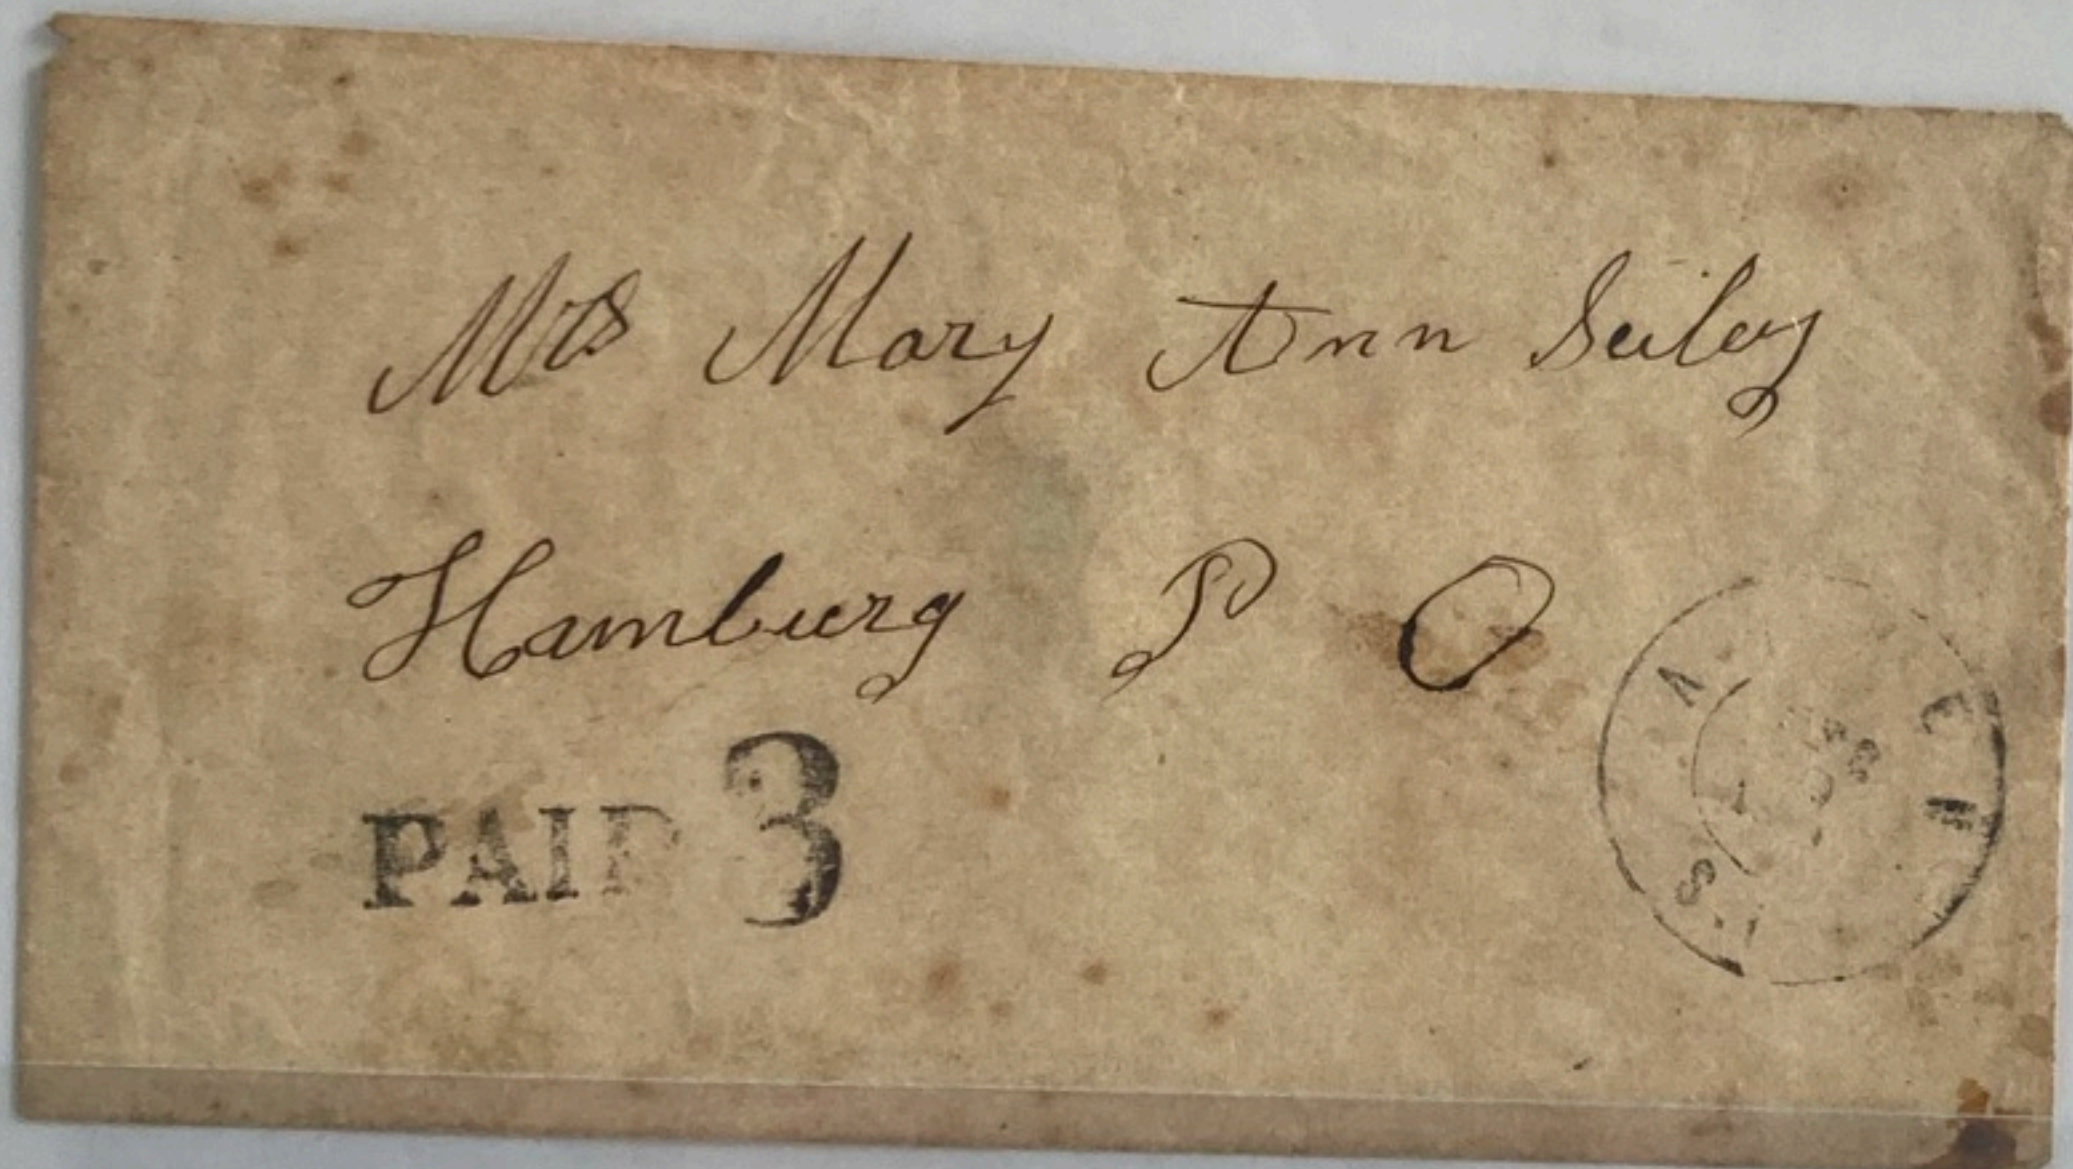 Mrs Mary Ann Seiley
Hamburg P O
PAID 3